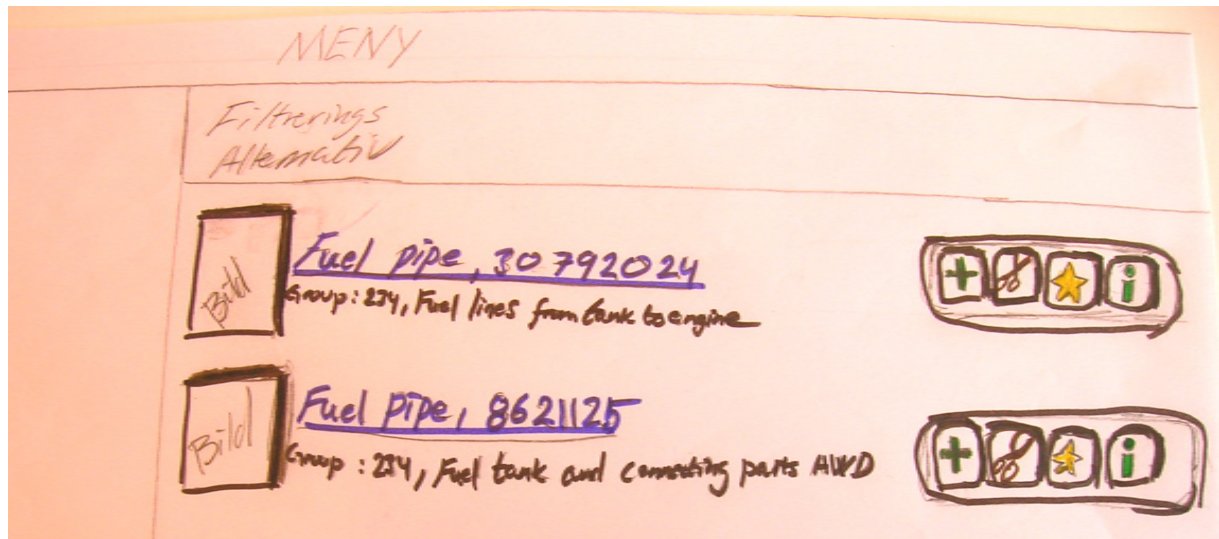 MENY
Filtrerings
Alternativ
Bild
Fuel pipe, 30792024
Group: 234, Fuel lines from tank to engine
Bild
Fuel pipe, 8621125
Group: 234, Fuel tank and connecting parts AWD